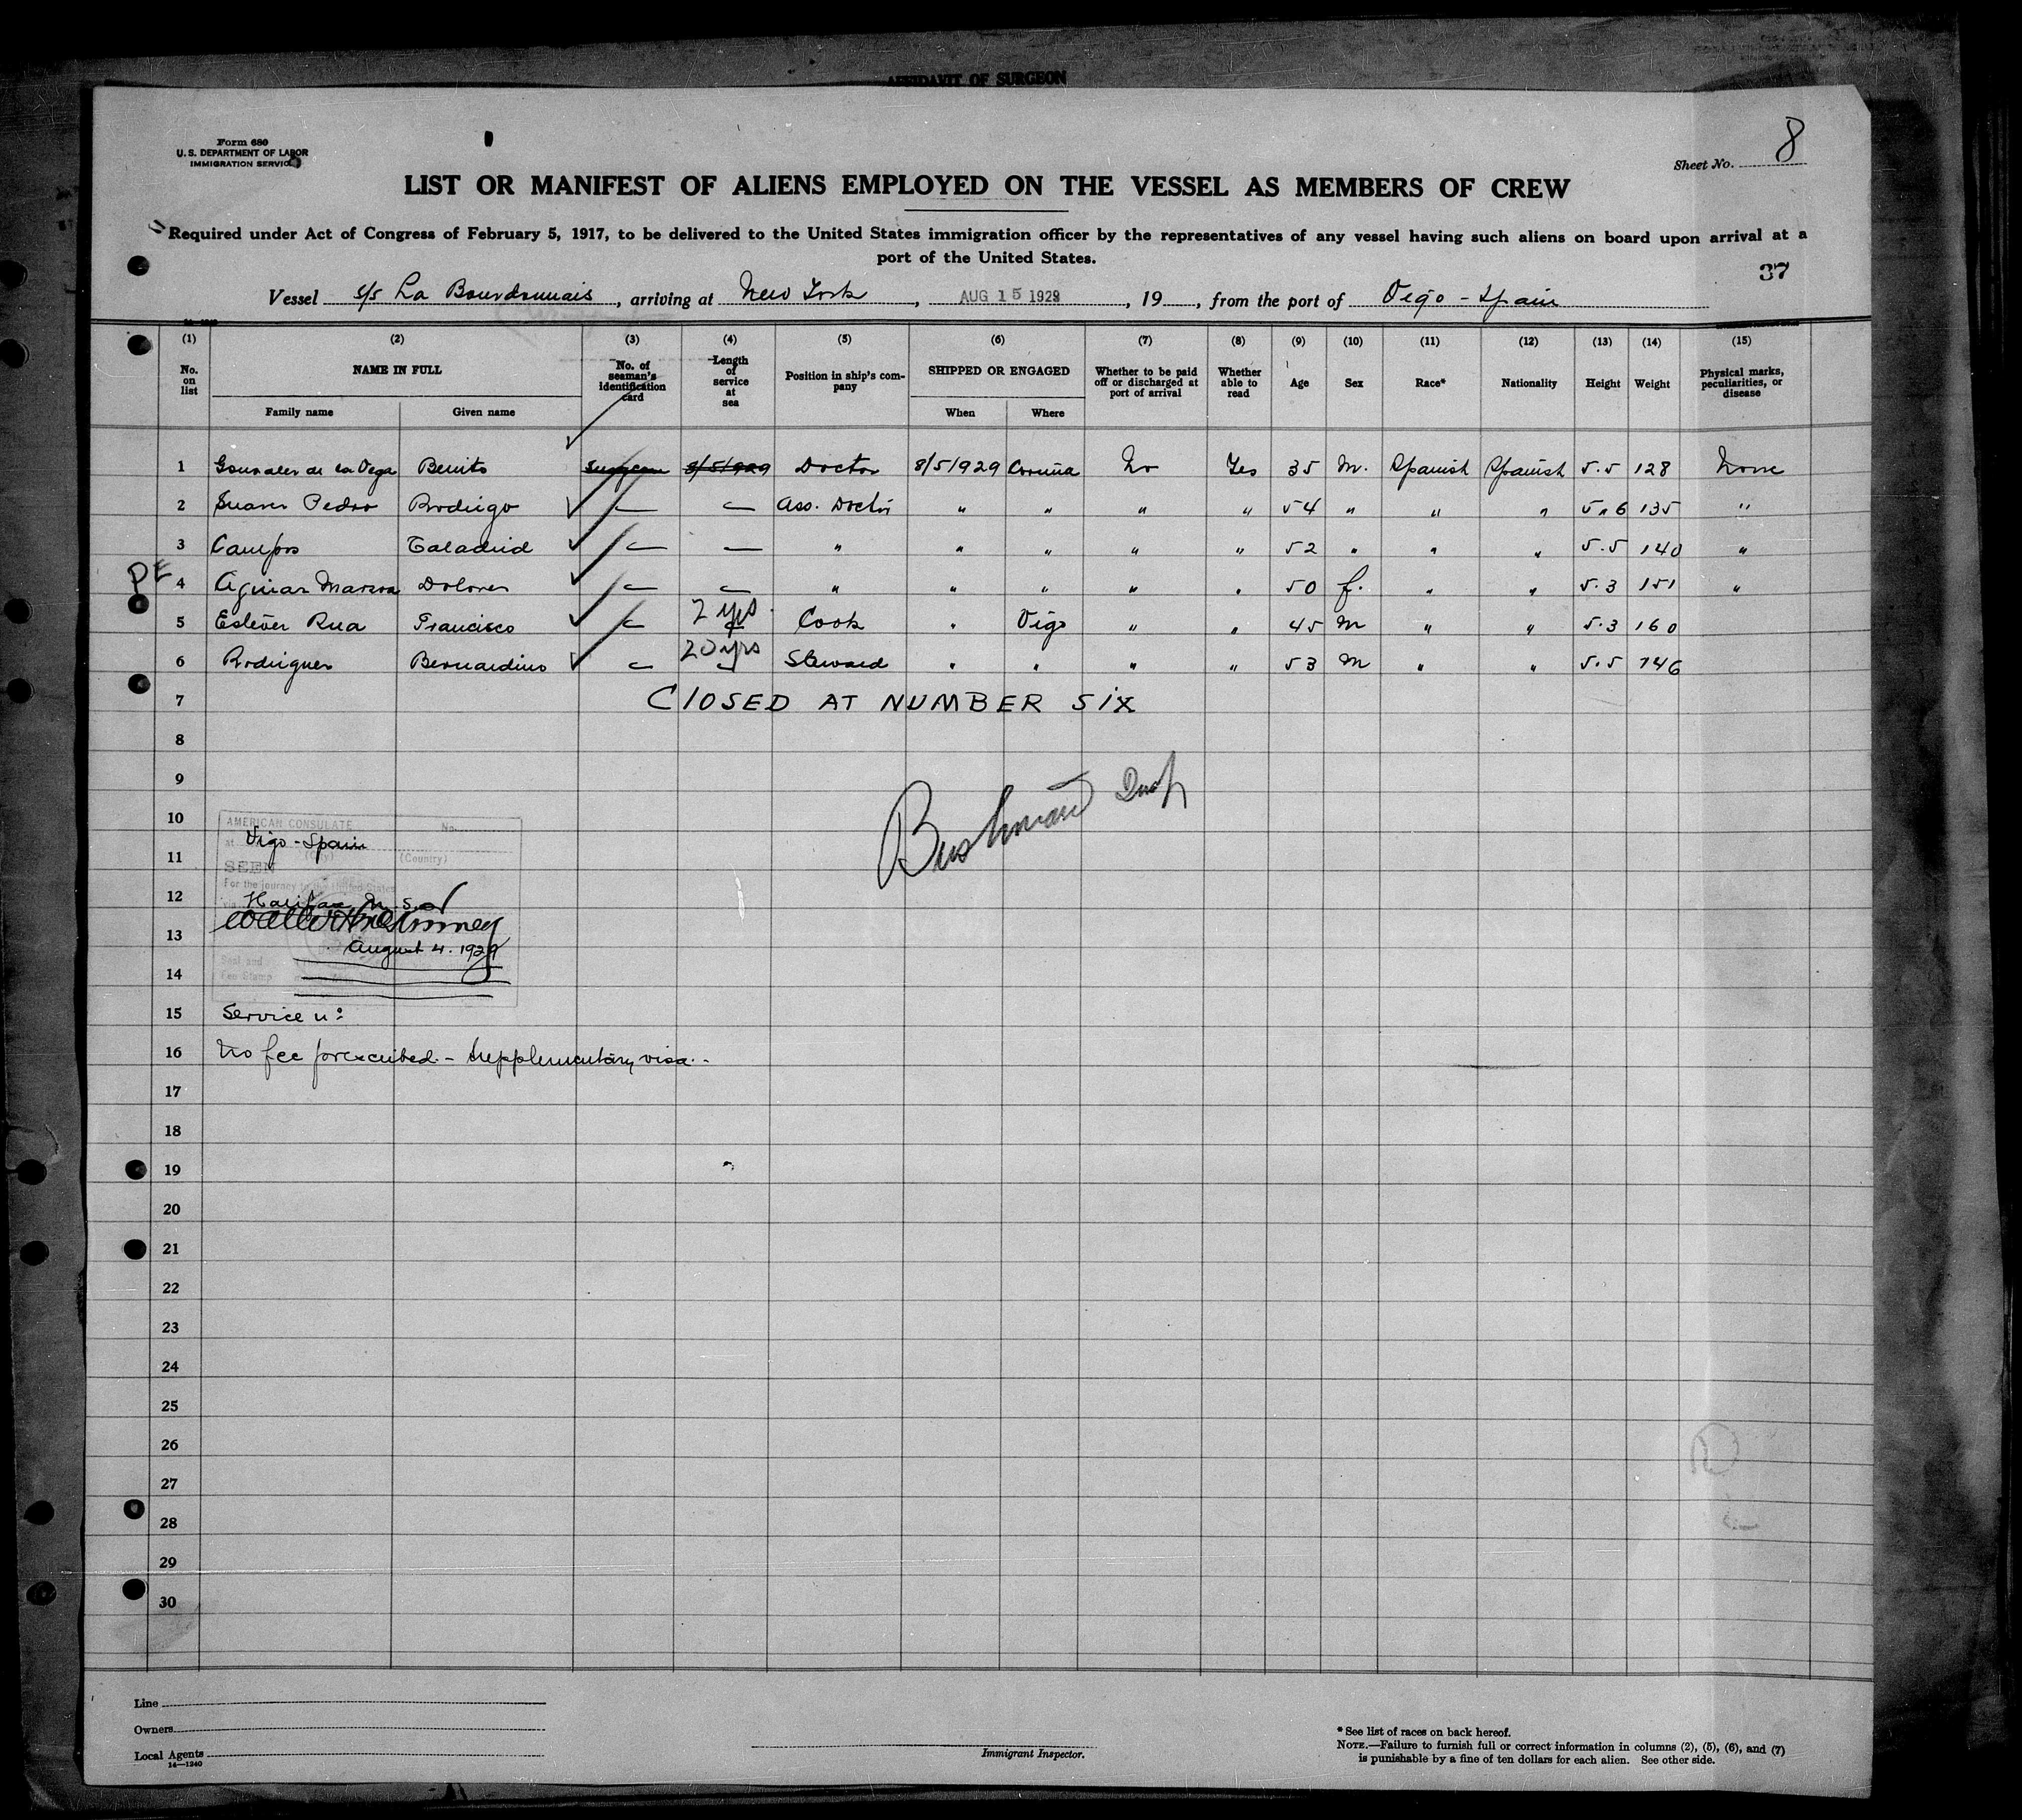 AFFIDAVIT OF SURGEON
Form 680
U. S. DEPARTMENT OF LABOR
IMMIGRATION SERVICE
Sheet No. 8
LIST OR MANIFEST OF ALIENS EMPLOYED ON THE VESSEL AS MEMBERS OF CREW
Required under Act of Congress of February 5, 1917, to be delivered to the United States immigration officer by the representatives of any vessel having such aliens on board upon arrival at a
port of the United States.
37
Vessel s/s La Bourdonnais, arriving at New York, AUG 15 1929, 19, from the port of Vigo - Spain
(1) (2) (3) (4) (5) (6) (7) (8) (9) (10) (11) (12) (13) (14) (15)
No. on list NAME IN FULL Family name Given name No. of seaman's identification card Length of service at sea Position in ship's company SHIPPED OR ENGAGED When Where Whether to be paid off or discharged at port of arrival Whether able to read Age Sex Race* Nationality Height Weight Physical marks, peculiarities, or disease
1 Gonzales de la Vega Benito Surgeon 8/5/929 Doctor 8/5/929 Coruña No Yes 35 M. Spanish Spanish 5.5 128 None
2 Suarez Pedro Rodrigo — — Ass. Doctor " " " " 54 " " " 5"6 135 "
3 Campos Taladrid — — " " " " " 52 " " " 5.5 140 "
PE 4 Aguiar Dolores — — " " " " " 50 f. " " 5.3 151 "
5 Estévez Rua Francisco — 2 yrs. Cook " Vigo " " 45 M " " 5.3 160
6 Rodriguez Bernardino — 20 yrs Steward " " " " 53 M " " 5.5 146
7 CLOSED AT NUMBER SIX
8
9
10
11
12
13
14
AMERICAN CONSULATE No.
at Vigo - Spain
(City) (Country)
SEEN
For the journey to the United States
via Halifax N.S.
August 4. 1929
Seal and
Fee Stamp
15 Service nº:
16 No fee prescribed - supplementary visa.-
17
18
19
20
21
22
23
24
25
26
27
28
29
30
Line
Owners
Local Agents
14—1240
Immigrant Inspector.
* See list of races on back hereof.
NOTE.—Failure to furnish full or correct information in columns (2), (5), (6), and (7)
is punishable by a fine of ten dollars for each alien. See other side.